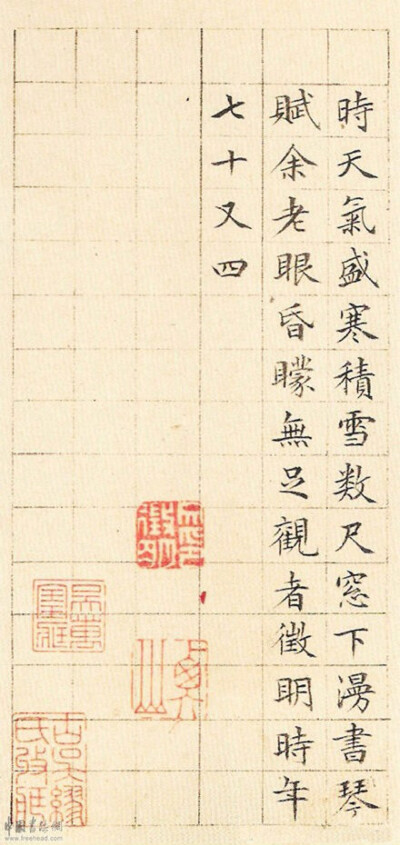 時天氣盛寒積雪数尺窓下漫書琴
賦余老眼昏矇無足觀者徵眀時年
七十又四
www.freehead.com